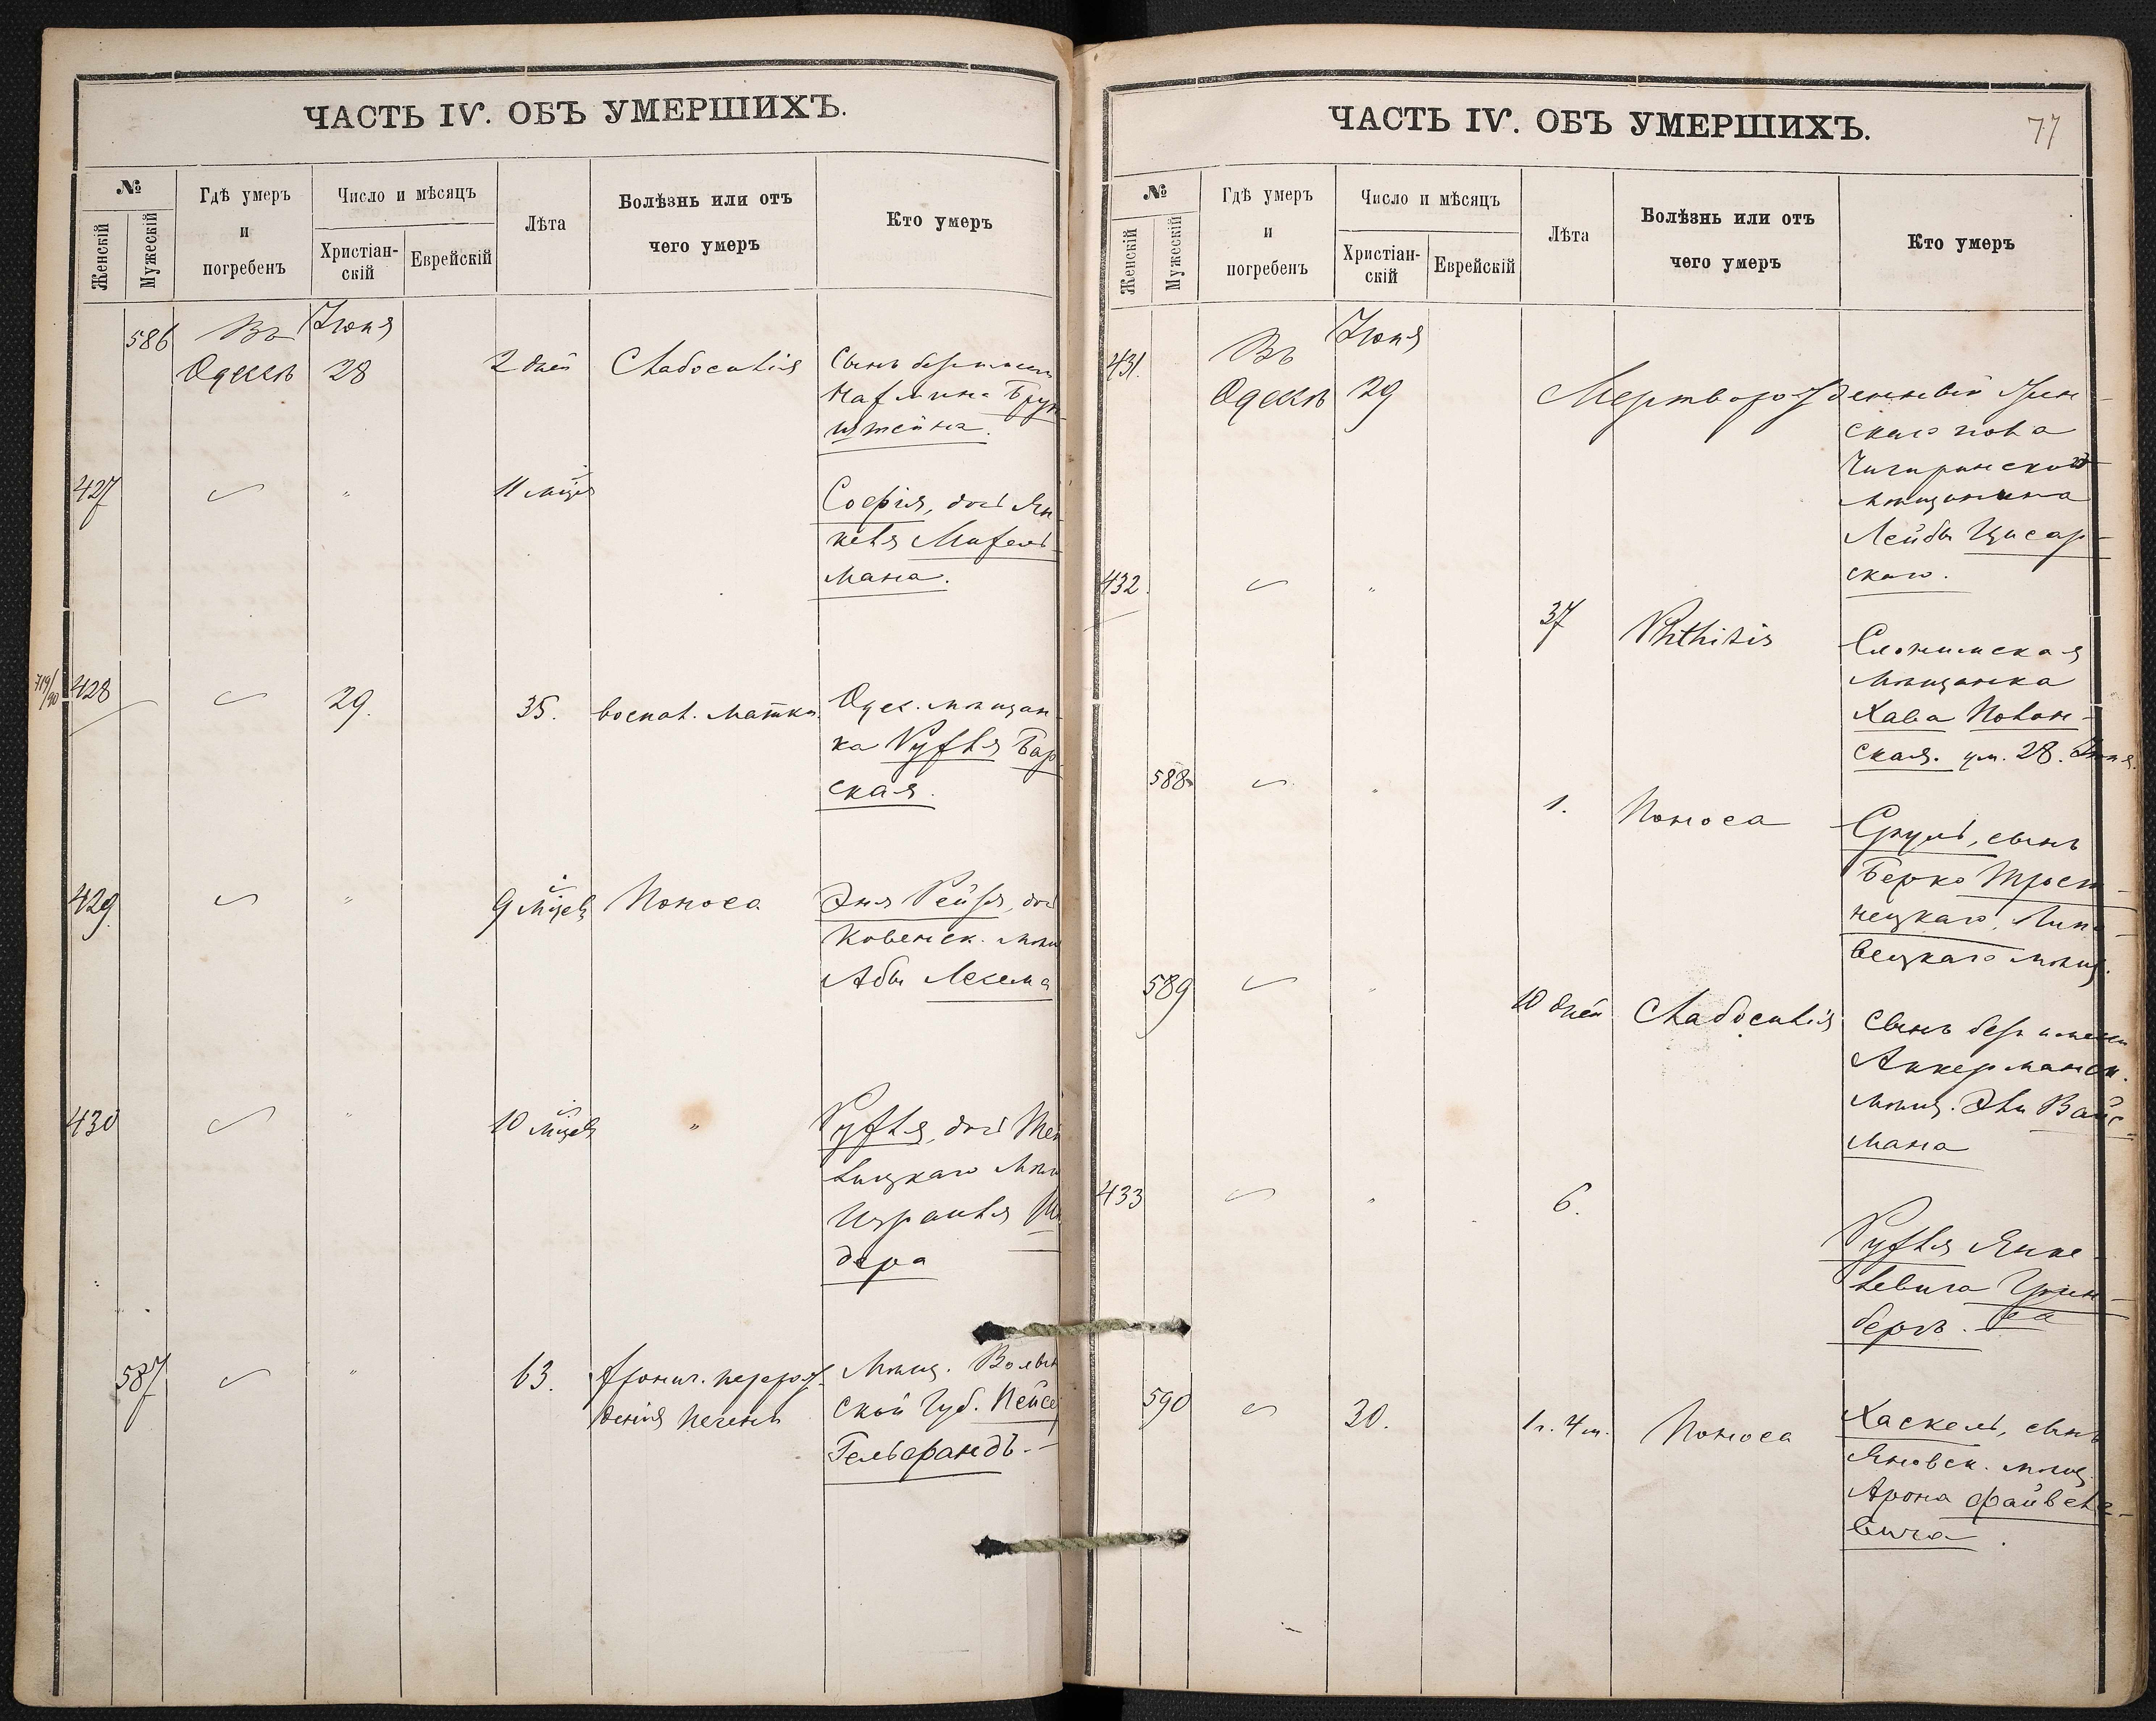 ЧАСТЬ IV. ОБЪ УМЕРШИХЪ.
№
Женскій
Мужескій
Гдѣ умеръ
и
погребенъ
Число и мѣсяцъ
Христіан-
скій
Еврейскій
Лѣта
Болѣзнь или отъ
чего умеръ
Кто умеръ
586
Въ
Одессѣ
Іюня
28
2 дней
Слабосилія
Сынъ безъ имени
Нахмана Брун-
штейна.
427
"
11 мѣс
Софія, дочь Ян-
келя Михель-
мана.
719/90
428
29.
35.
воспал. матки.
Одес. мѣщан-
ка Рухля Бар-
ская.
429
"
9 мѣсяц
Поноса
Эня Рейзя, доч
Ковенск. мѣщ
Абы Лехема
430
"
10 мѣсяц
"
Рухля, дочь
лицкаго мѣщ
Израиля
дера
587
"
63.
хронич. перерож-
денія печени
Мѣщ. Волын
ской Губ. Пейса
Гельфандъ.
ЧАСТЬ IV. ОБЪ УМЕРШИХЪ.
77
№
Женскій
Мужескій
Гдѣ умеръ
и
погребенъ
Число и мѣсяцъ
Христіан-
скій
Еврейскій
Лѣта
Болѣзнь или отъ
чего умеръ
Кто умеръ
431.
Въ
Одессѣ
Іюня
29
Мертворожденный жен-
скаго пола
Чигиринскаго
мѣщанина
Лейбы Цисар-
скаго.
432.
"
37
Phthisis
Слонимская
мѣщанка
Хава Полон-
ская. ум. 28. Іюня.
588
"
1.
Поноса
Сруль, сынъ
Берко Трост-
нецкаго, Липо-
вецкаго мѣщ.
589
"
10 дней
Слабосилія
Сынъ безъ имени
Аккерманск.
мѣщ. Эли Вайс-
мана
433
"
6.
Рухля Янке-
левича Грин-
бергъ.
590
30.
1 г. 4 м.
Поноса
Хаскель, сынъ
Яновск. мѣщ.
Арона Файвеле-
вича